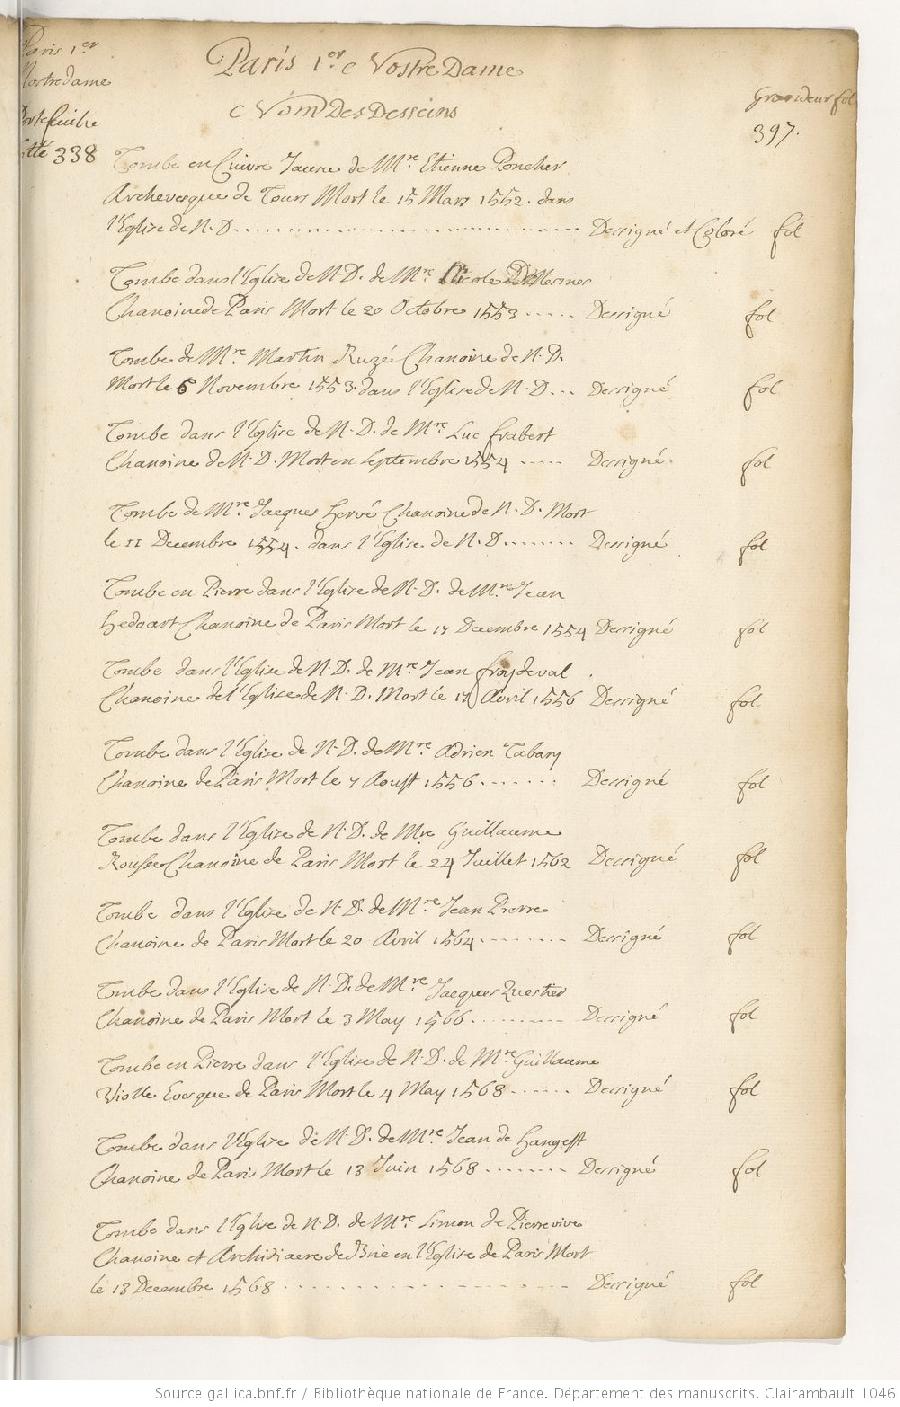 Paris 1er
Nostre dame
Portefeuille
Cotté 338
Paris 1er Nostre Dame
Nom Des Desseins
Grandeur fol
397.
Tombe en Cuivre Jaune de Mre Etienne Poncher
Archevesque de Tours Mort le 15 Mars 1552. dans
l'Eglise de N. D. Dessigné et Coloré fol
Tombe dans l'Eglise de N. D. de Mre Nicole
Chanoine de Paris Mort le 20 Octobre 1553 Dessigné fol
Tombe de Mre Martin Ruzé Chanoine de N. D.
Mort le 6 Novembre 1553. dans l'Eglise de N. D. Dessigné fol
Tombe dans l'Eglise de N. D. de Mre Luc frabert
Chanoine de N. D. Mort en septembre 1554 Dessigné. fol
Tombe de Mre Jacques Hervé Chanoine de N. D. Mort
le 11 Decembre 1554. dans l'Eglise de N. D. Dessigné fol
Tombe en Pierre dans l'Eglise de N. D. de Mre Jean
Hedoart Chanoine de Paris Mort le 17 Decembre 1554 Dessigné fol
Tombe dans l'Eglise de N. D. de Mre Jean froydeval
Chanoine de l'Eglise de N. D. Mort le 17 Avril 1556 Dessigné fol
Tombe dans l'Eglise de N. D. de Mre Adrien Tabary
Chanoine de Paris Mort le 7 Aoust 1556 Dessigné fol
Tombe dans l'Eglise de N. D. de Mre Guillaume
Rousse Chanoine de Paris Mort le 24 Juillet 1562 Dessigné fol
Tombe dans l'Eglise de N. D. de Mre Jean Pierre
Chanoine de Paris Mort le 20 Avril 1564 Dessigné fol
Tombe dans l'Eglise de N. D. de Mre Jacques Questier
Chanoine de Paris Mort le 3 May 1566 Dessigné fol
Tombe en Pierre dans l'Eglise de N. D. de Mre Guillaume
Violle Evesque de Paris Mort le 4 May 1568 Dessigné fol
Tombe dans l'Eglise de N. D. de Mre Jean de Hangest
Chanoine de Paris Mort le 13 Juin 1568 Dessigné fol
Tombe dans l'Eglise de N. D. de Mre Simon de Pierrevive
Chanoine et Archidiacre de Brie en l'Eglise de Paris Mort
le 13 Decembre 1568 Dessigné fol
Source gallica.bnf.fr / Bibliothèque nationale de France. Département des manuscrits. Clairambault 1046